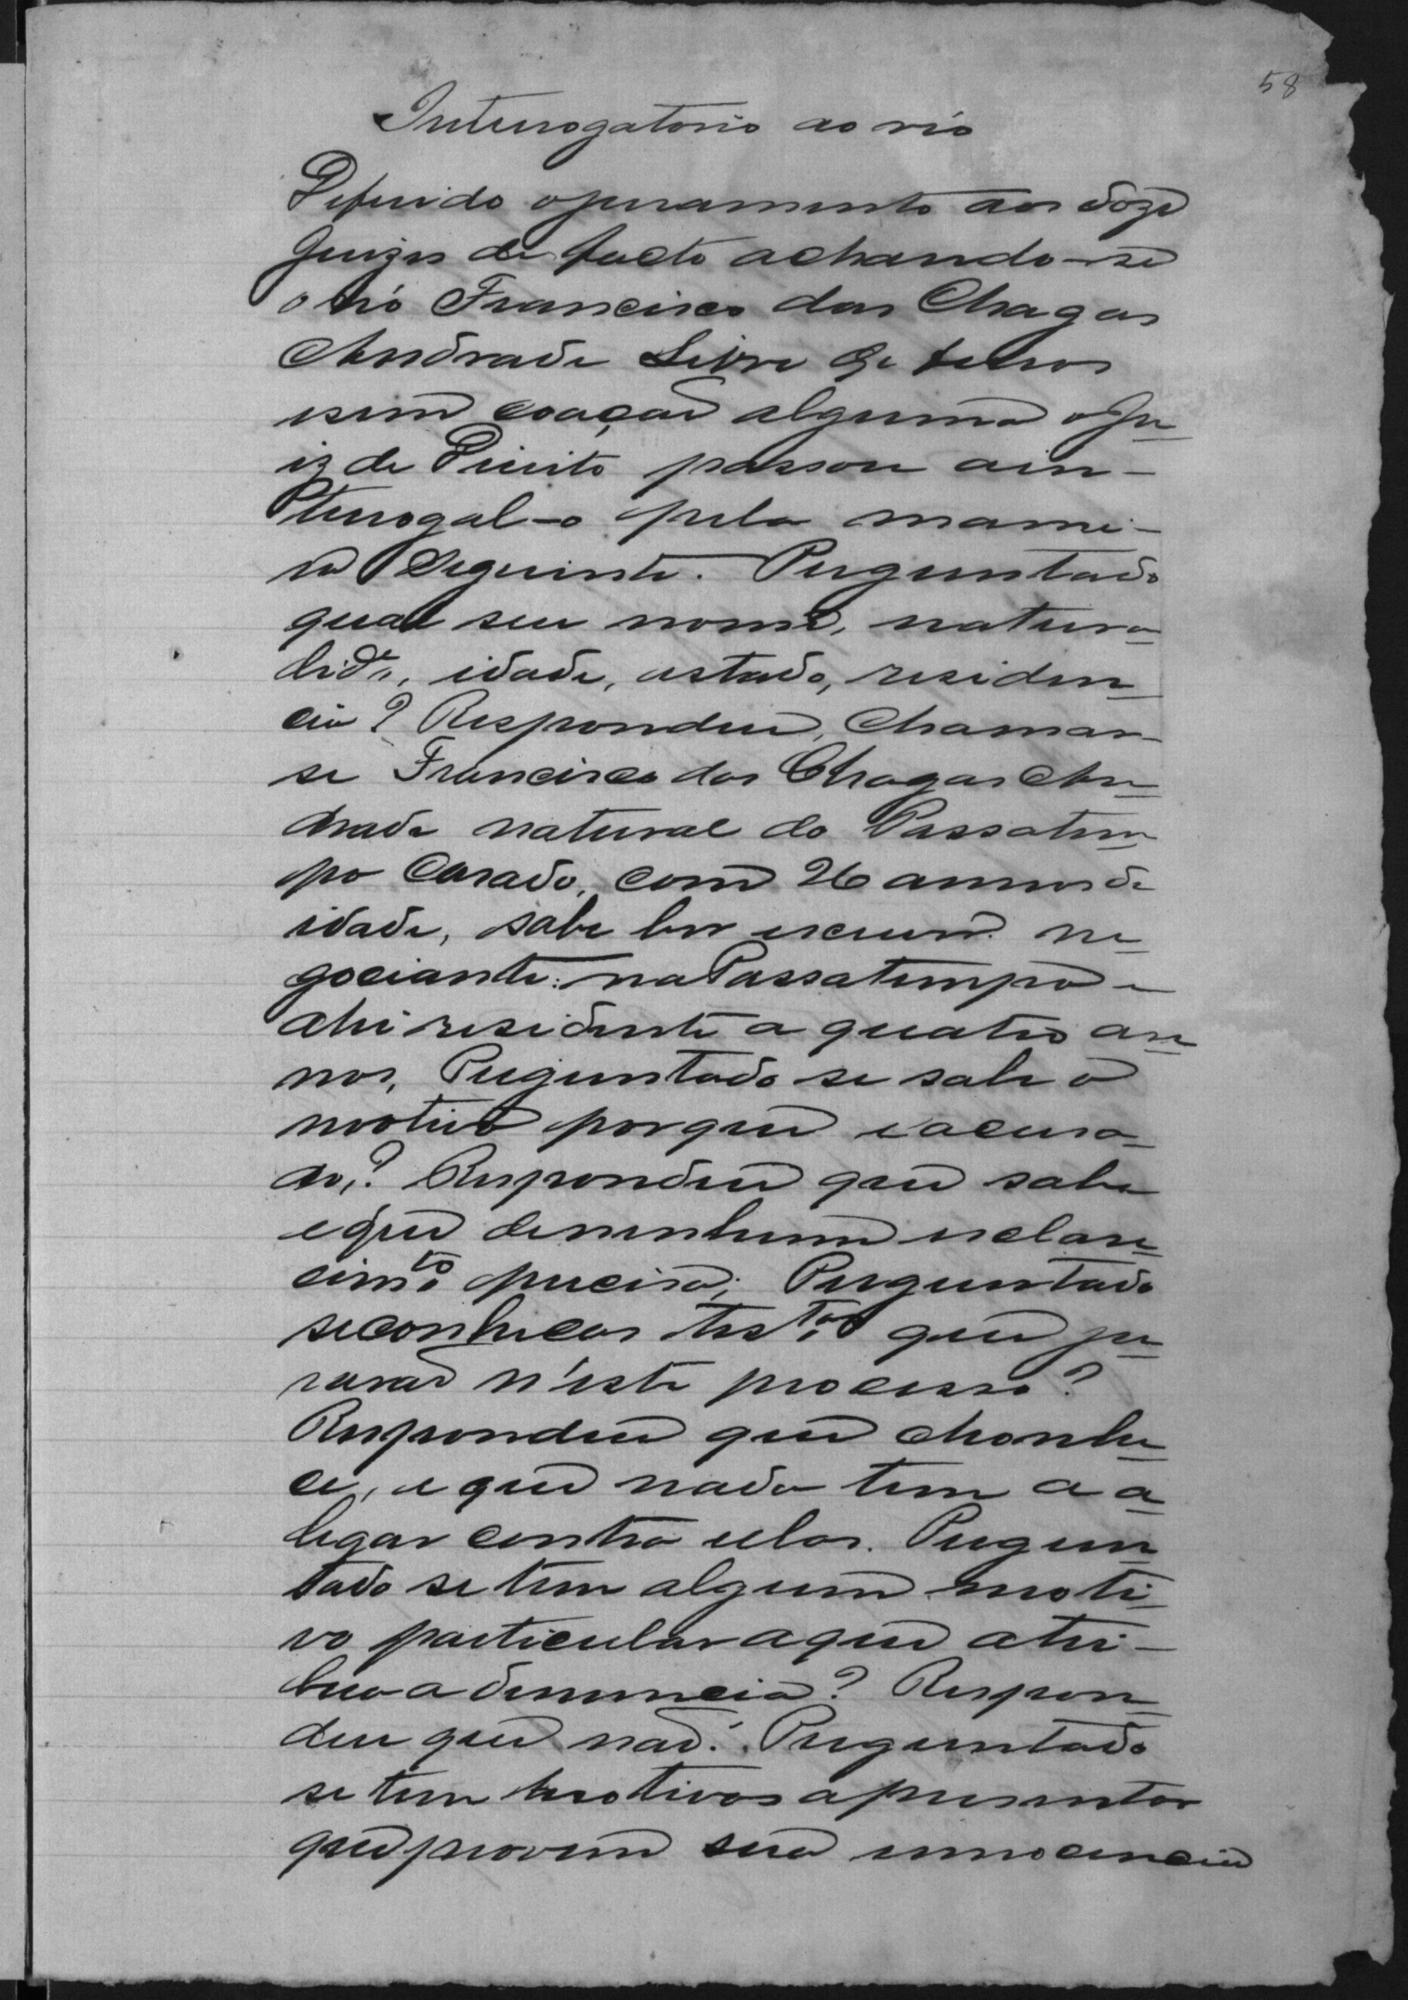 58
Interrogatorio ao réo
Deferido o juramento aos doze
Juizes de facto achando-se
o réo Francisco das Chagas
Andrade livre de ferros
e sem coação alguma o Ju
iz de Direito passou a in-
terrogal-o pela manei-
ra seguinte. Perguntado
qual seu nome, natura
lid.e, idade, estado, residen
cia? Respondeu, chamar-
se Francisco das Chagas An
drade natural do Passatem
po casado, com 26 annos de
idade, sabe ler escrever. ne
gociante: na Passatempo e
ahi residente a quatro an
nos, Perguntado se sabe o
motivo porque e accusa
do,? Respondeu que sabe
e que de nenhum esclare
cim.to precisa; Perguntado
se conhece as test.as que ju
rarão n'este processo?
Respondeu que chonhe
ce, e que nada tem a a
legar contra ellas. Pergun
tado se tem algum moti
vo particular a que atri-
bua a denuncia? Respon
deu que não. Perguntado
se tem motivos apresentar
que provem sua innocencia